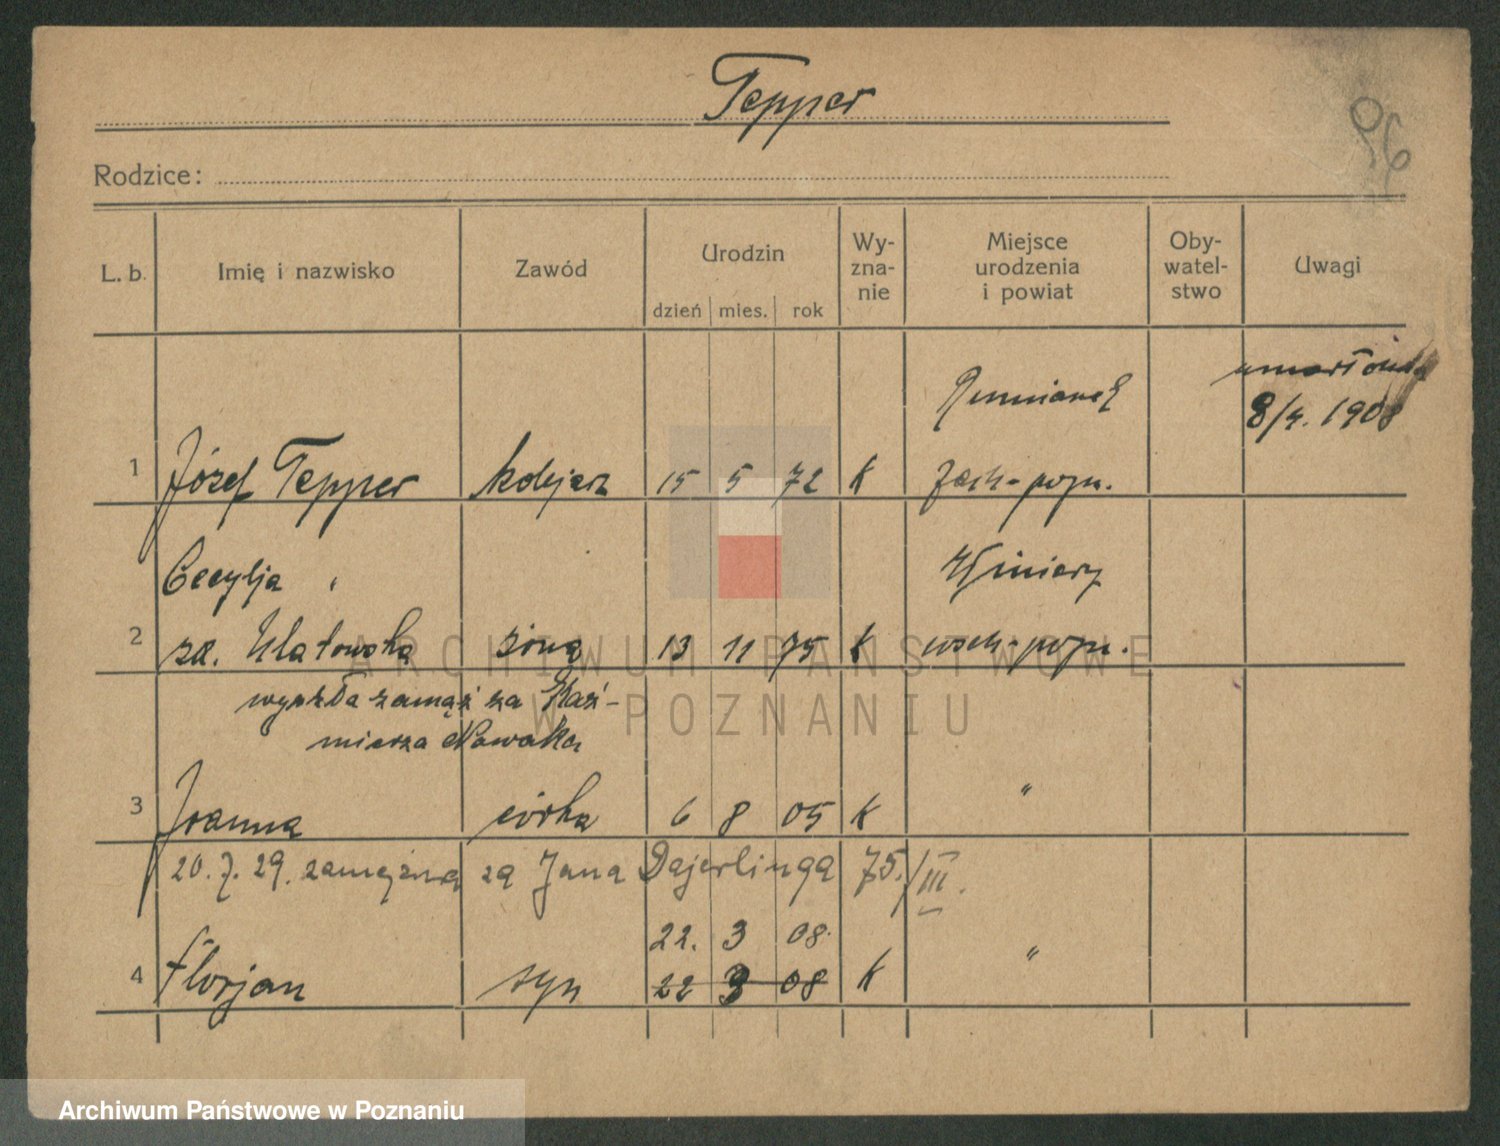 Tepper
96
Rodzice:
L. b. Imię i nazwisko Zawód Urodzin Wy-zna-nie Miejsce urodzenia i powiat Oby-watel-stwo Uwagi
dzień mies. rok
Rumianek umarł
8/4. 1908
1 Józef Tepper kolejarz 15 5 72 K zach-pozn.
Cecylja Winiary
2 za. Ulatowska żona 13 11 75 K wsch-pozn.
wyszła zamąż za Kaź-
mierza Nowaka
3 Joanna córka 6 8 05 K "
20. 7. 29. zamężna za Jana Dajerlinga 75./III.
22. 3 08.
4 Florjan syn 22 3 08 K "
ARCHIWUM PAŃSTWOWE
W POZNANIU
Archiwum Państwowe w Poznaniu